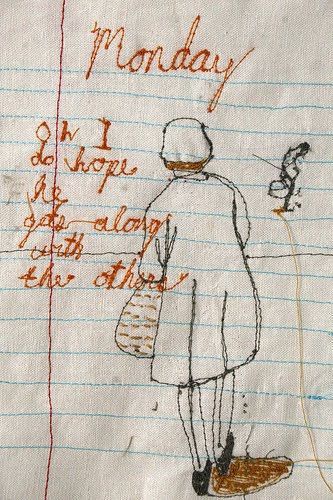 Monday
Oh I
do hope
he
gets along
with
the others